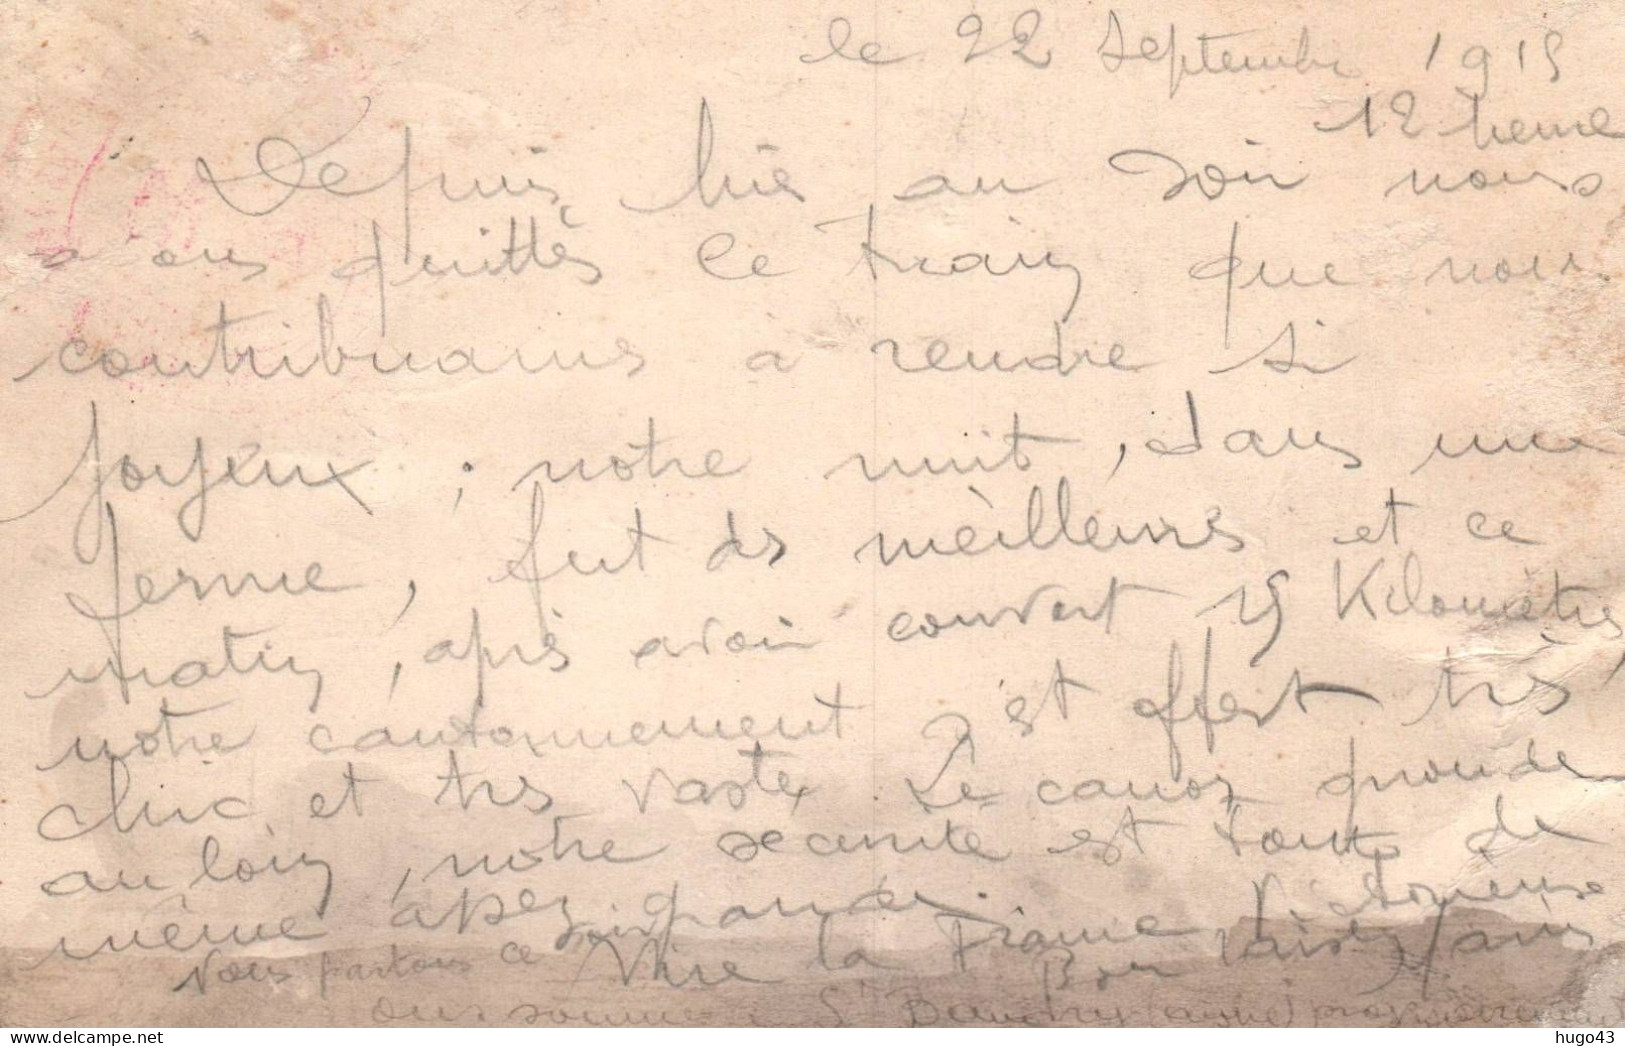 le 22 Septembre 1915
12 heure
Depuis hier au soir nous
avons quittés le train que nous
contribuions à rendre si
joyeux ; notre nuit, dans une
ferme, fut ds meilleurs et ce
matin, après avoir couvert 15 Kilomètres,
notre cantonnement est offert très
chic et très vaste Le canon gronde
au loin, notre sécurité est toute de
même assez grande.
Vive la France Victorieuse
Bon Baisers
Nous partons ce soir
ous sommes à St